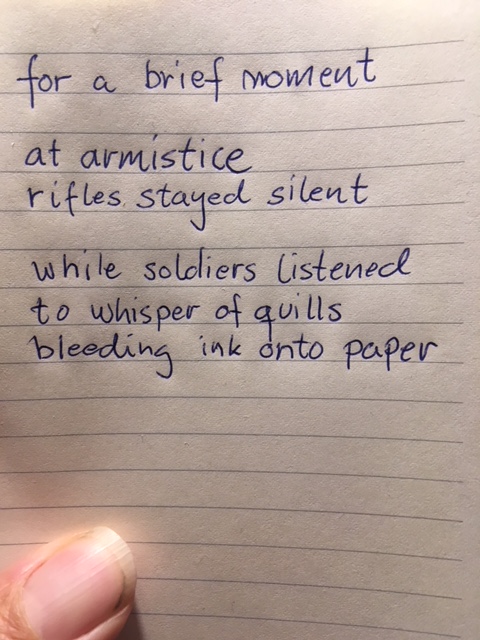 for a brief moment
at armistice
rifles stayed silent
while soldiers listened
to whisper of quills
bleeding ink onto paper